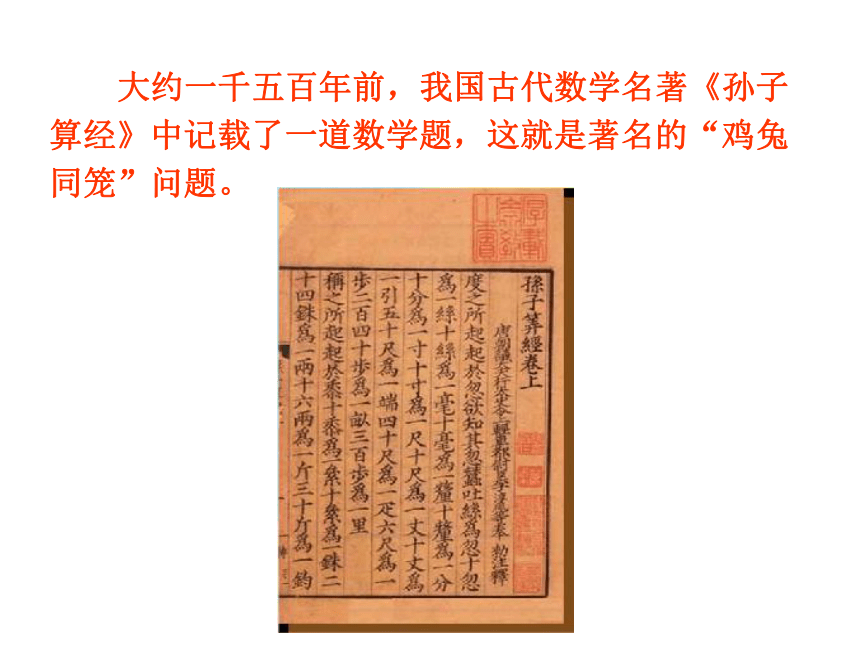 大约一千五百年前，我国古代数学名著《孙子
算经》中记载了一道数学题，这就是著名的“鸡兔
同笼”问题。
孫子筭經卷上
度之所起起於忽欲知其忽蠶吐絲為忽十忽
為一絲十絲為一毫十毫為一釐十釐為一分
十分為一寸十寸為一尺十尺為一丈十丈為
一引五十尺為一端四十尺為一疋六尺為一
步二百四十步為一畝三百步為一里
稱之所起起於黍十黍為一絫十絫為一銖二
十四銖為一兩十六兩為一斤三十斤為一鈞